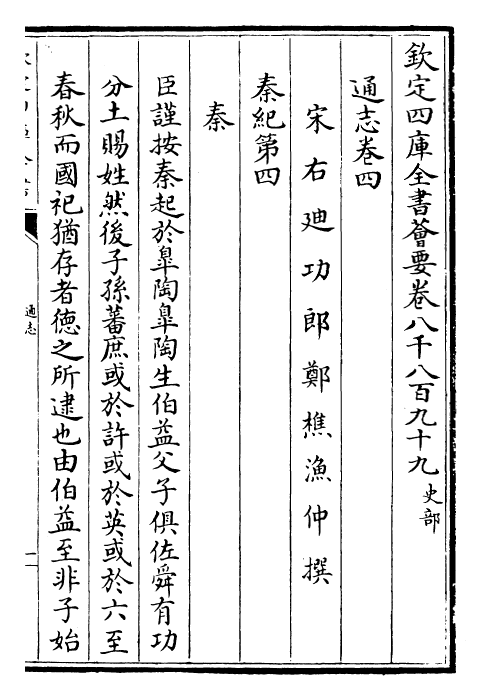 欽定四庫全書薈要卷八千八百九十九 史部
通志卷四
宋右廸功郎鄭樵漁仲撰
秦紀第四
秦
臣謹按秦起於臯陶臯陶生伯益父子俱佐舜有功
分土賜姓然後子孫蕃庶或於許或於英或於六至
春秋而國祀猶存者徳之所逮也由伯益至非子始
通志
一